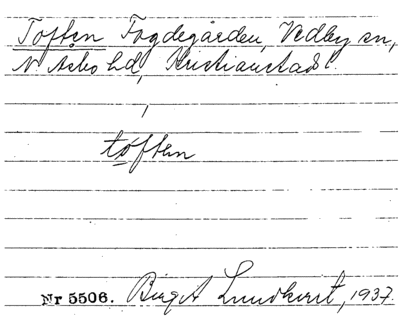 Toften Fogdegården, Vedby sn,
N Åsbo hd, Kristianstads l.
tòften
Nr 5506. Birgit Lundkvist, 1937.